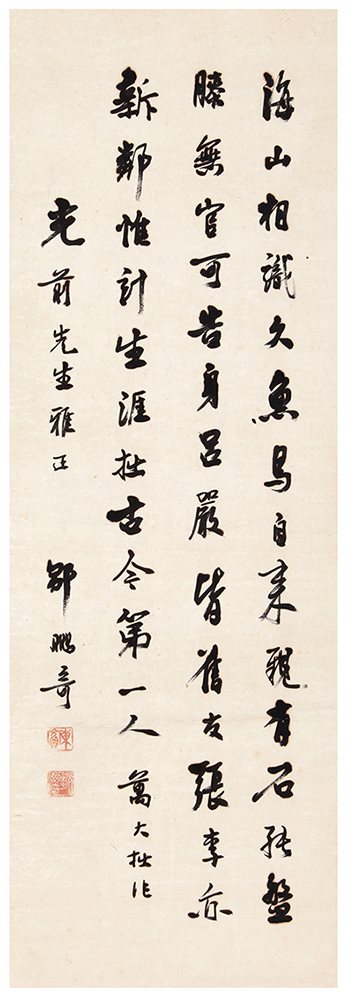 海山相識久魚鳥自來親有石能盤
膝無官可告身呂嚴皆舊友張李亦
新鄰惟計生涯拙古今第一人 萬大拙作
光前先生雅正 鄒鵬奇
東賓